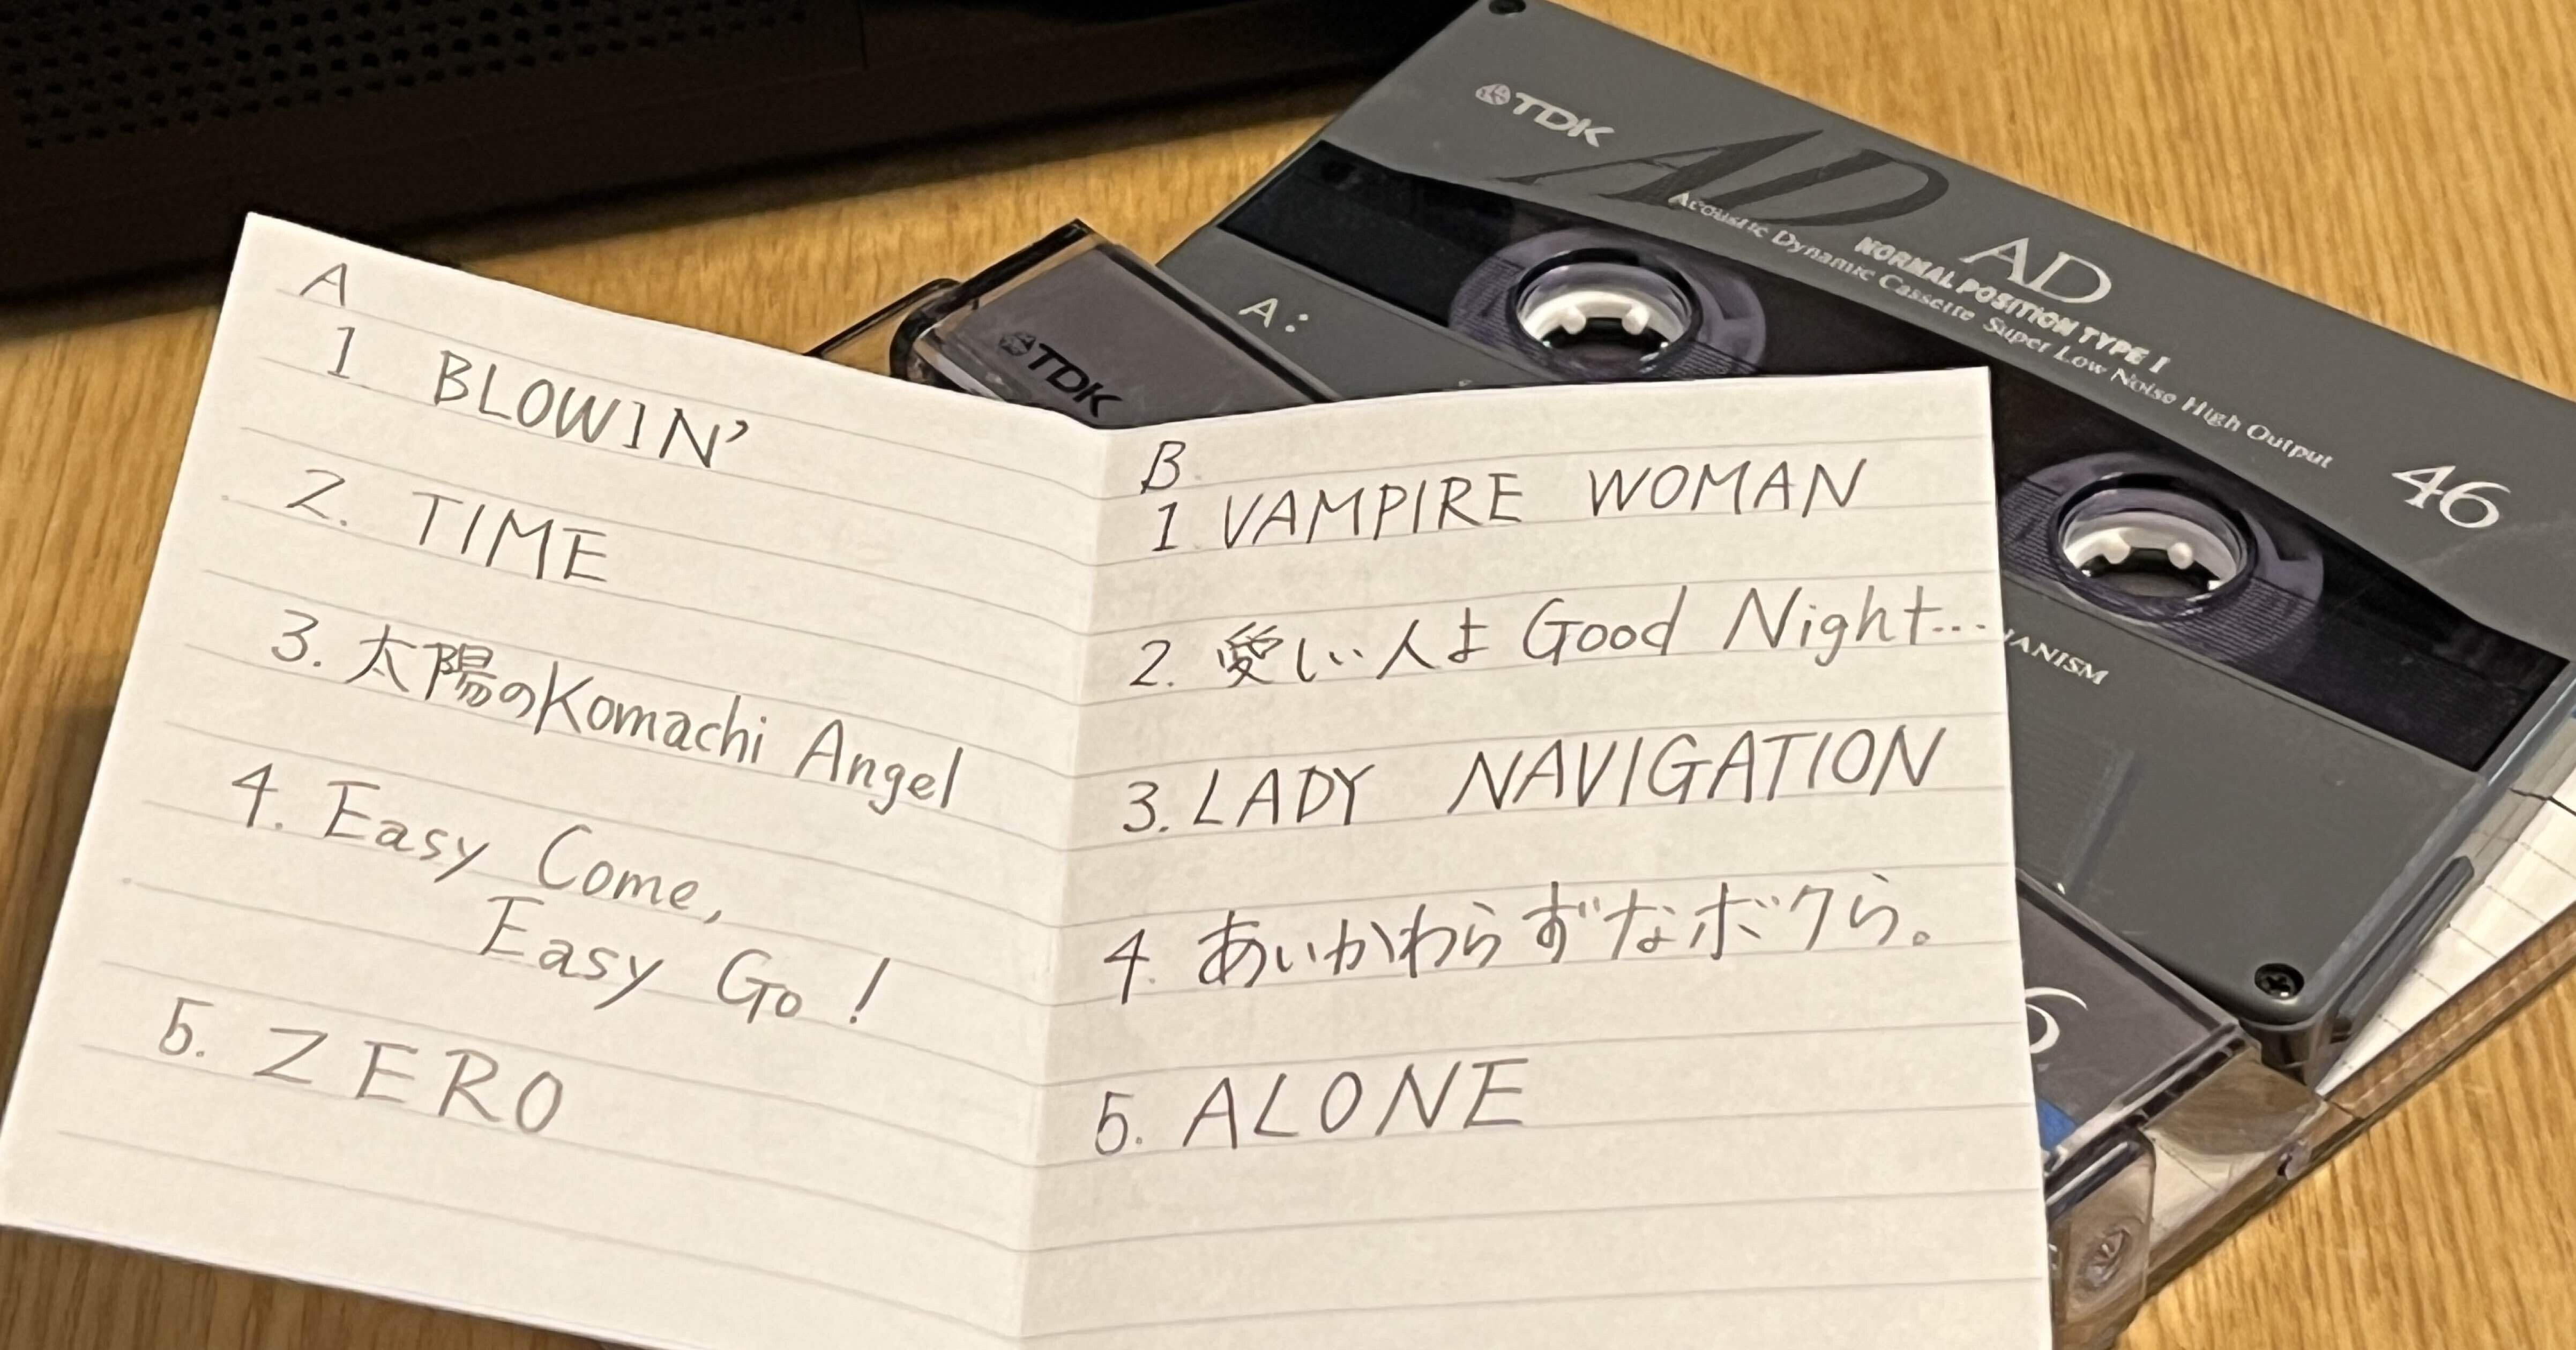 TDK
AD
AD
NORMAL POSITION TYPE I
Acoustic Dynamic Cassette Super Low Noise High Output
46
A:
TDK
ANISM
6
A
1 BLOWIN'
2. TIME
3. 太陽のKomachi Angel
4. Easy Come,
Easy Go!
5. ZERO
B
1 VAMPIRE WOMAN
2. 愛しい人よ Good Night...
3. LADY NAVIGATION
4. あいかわらずなボクら。
5. ALONE